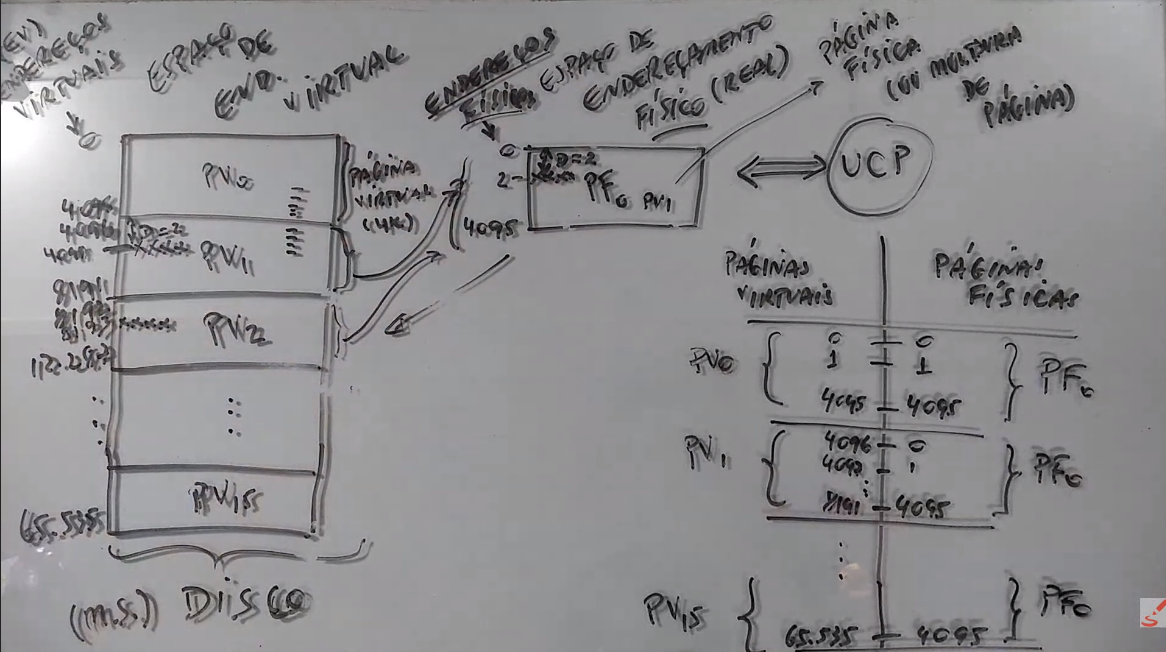 (EV)
ENDEREÇOS
VIRTUAIS
ESPAÇO DE
END. VIRTUAL
0
PV0
4.095
PÁGINA
VIRTUAL
(4K)
4.096
D=2
PV1
8191
PV2
PV15
65.535
(M.S.) DISCO
ENDEREÇOS
FÍSICOS
ESPAÇO DE
ENDEREÇAMENTO
FÍSICO (REAL)
0
D=2
2
PF0 PV1
4095
PÁGINA
FÍSICA
(OU MOLDURA
DE
PÁGINA)
UCP
PÁGINAS
VIRTUAIS
PÁGINAS
FÍSICAS
PV0
0 0
1 1
4095 4095
PF0
PV1
4096 0
4097 1
8191 4095
PF0
PV15
65.535 4095
PF0
S